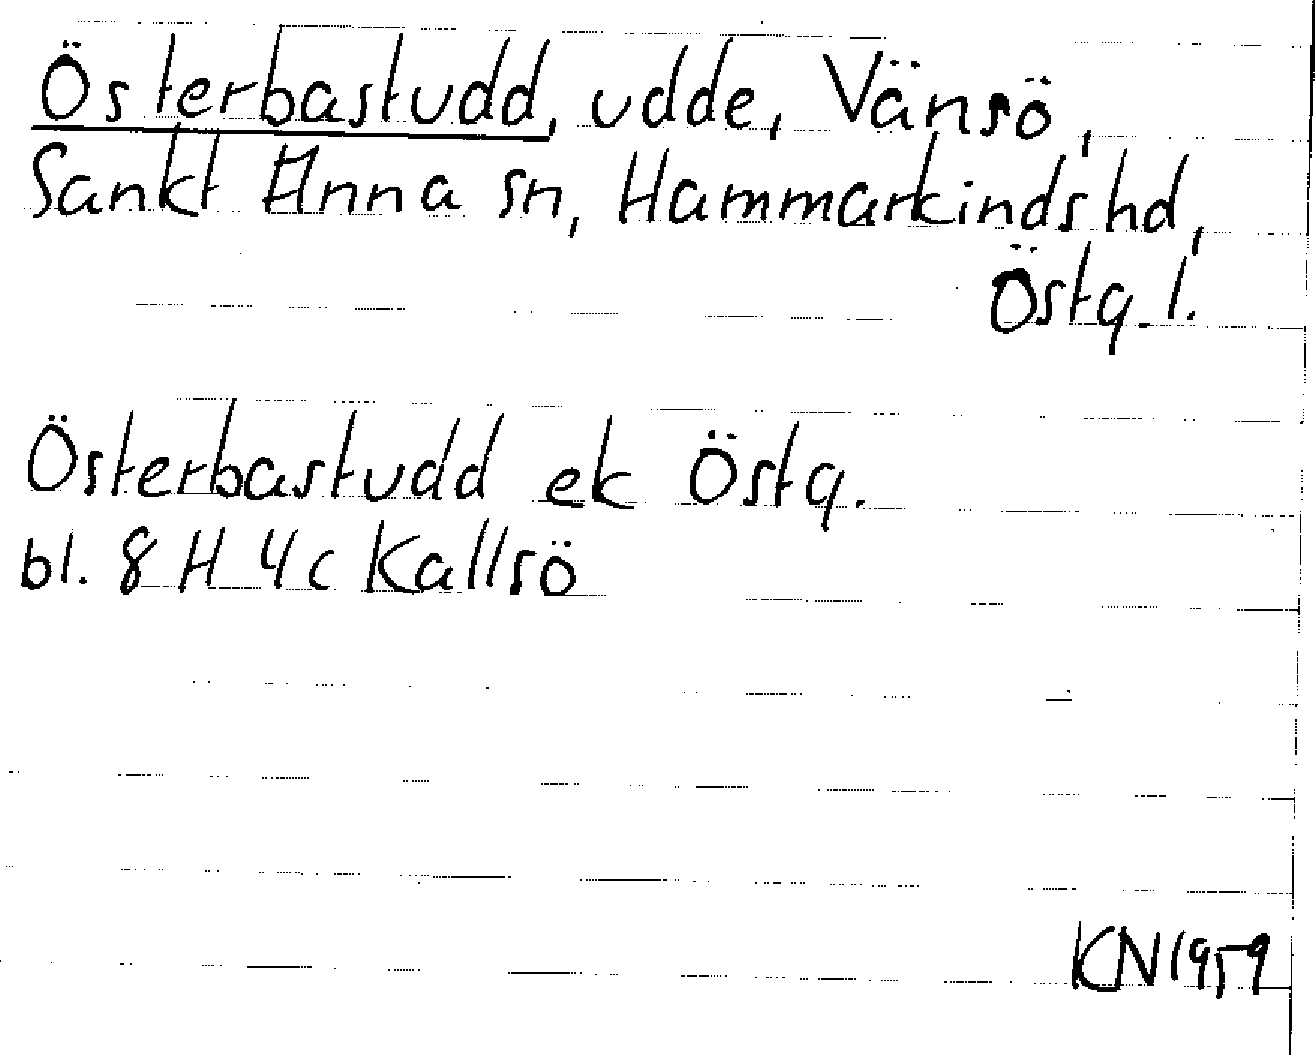 Österbastudd, udde, Vänsö,
Sankt Anna sn, Hammarkinds hd,
Östg. l.
Österbastudd ek Östg.
bl. 8 H 4c Kallsö
KN 1959